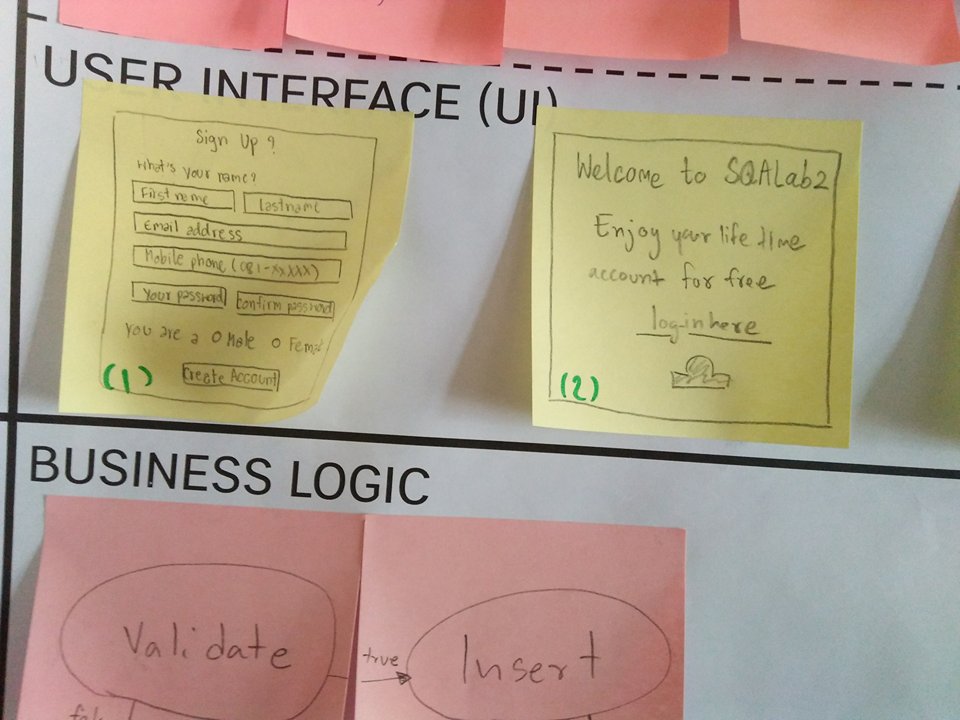 USER INTERFACE (UI)
Sign Up ?
What's your name?
First name
Lastname
Email address
Mobile phone (081-XXXXX)
Your password
Confirm password
You are a O Male O
Create Account
(1)
Welcome to SQALab2
Enjoy your life time
account for free
log-in here
(2)
BUSINESS LOGIC
Validate
true
Insert